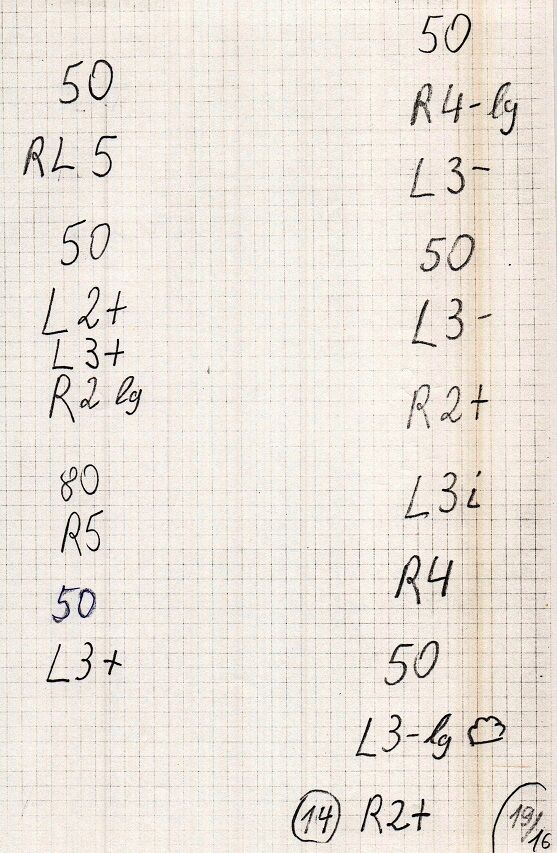 50
RL 5
50
L2+
L3+
R2 lg
80
R5
50
L3+
50
R4-lg
L3-
50
L3-
R2+
L3i
R4
50
L3-lg
14 R2+
19/16